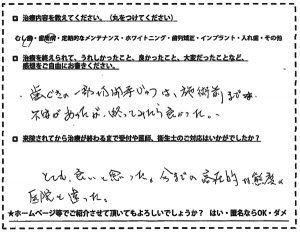 □ 治療内容を教えてください。(丸をつけてください)
むし歯・歯周病・定期的なメンテナンス・ホワイトニング・歯列矯正・インプラント・入れ歯・その他
□ 治療を終えられて、うれしかったこと、良かったこと、大変だったことなど、
感想をご自由にお書きください。
歯ぐきの一部切開手じゅつは、施術前までは
不安があったが、終ってみたら良かった。
□ 来院されてから治療が終わるまで受付や医師、衛生士のご対応はいかがでしたか?
とても、良いと思った。今までの高圧的な態度の
医院と違った。
★ホームページ等でご紹介させて頂いてもよろしいでしょうか? はい・匿名ならOK・ダメ